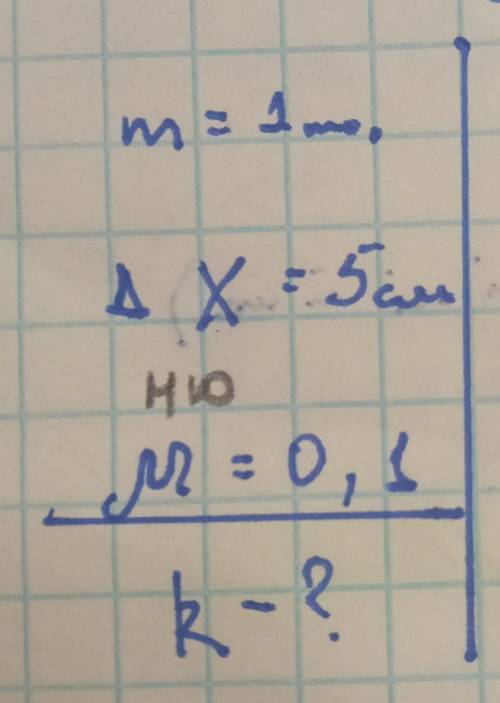 m = 1 т.
Δ X = 5 см
ню
μ = 0,1
k - ?